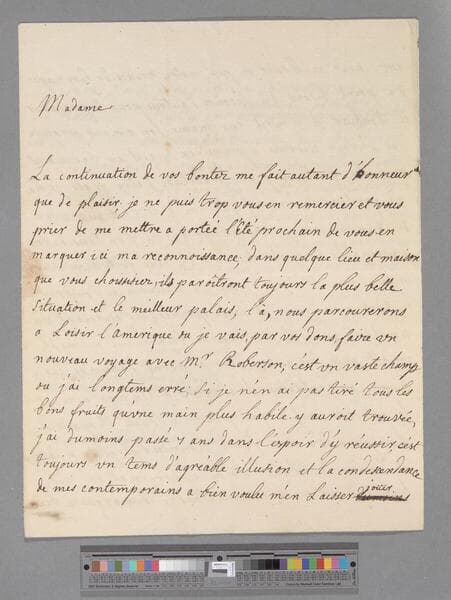 Madame
La continuation de vos bontez me fait autant d'honneur
que de plaisir. je ne puis trop vous en remercier et vous
prier de me mettre a portée l'été prochain de vous en
marquer ici ma reconnoissance. dans quelque lieu et maison
que vous choisissiez, ils paroitront toujours la plus belle
situation et le meilleur palais, là, nous parcourerons
a Loisir l'amerique ou je vais, par vos dons, faire vn
nouveau voyage avec Mr. Roberson, c'est vn vaste champ
ou j'ai longtems erré: Si je n'en ai pas tiré tous les
bons fruits qu'vne main plus habile y auroit trouvée,
j'ai dumoins passé 7 ans dans l'espoir d'y réussir, c'est
toujours vn tems d'agréable illusion et la condescendance
de mes contemporains a bien voulu m'en Laisser jouir